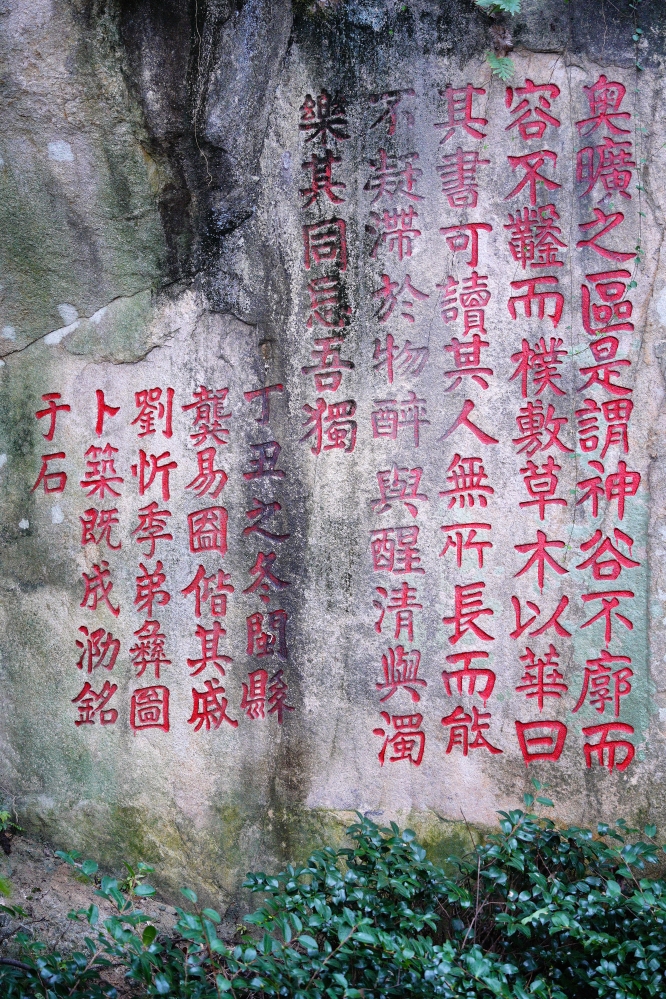 奥曠之區是謂神谷不廓而
容不鑿而樸敷草木以華曰
其書可讀其人無所長而能
不凝滯於物醉與醒清與濁
樂其同忘吾獨
丁丑之冬閩縣
龔易圖偕其戚
劉忻季弟彝圖
卜築既成泐銘
于石